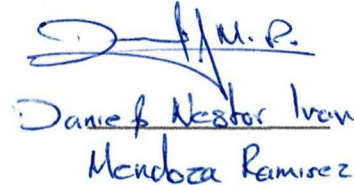 D M. R.
Daniel Nestor Ivan
Mendoza Ramirez